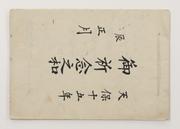 天保十五年
御祈念之扣
辰正月